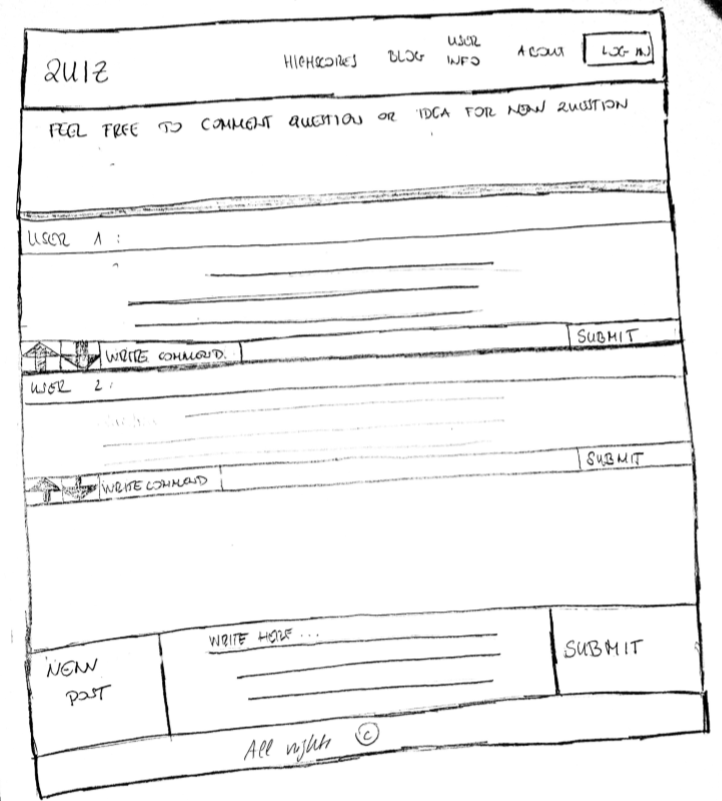 QUIZ
HIGHSCORES BLOG USER INFO ABOUT LOG IN
FEEL FREE TO COMMENT QUESTION OR IDEA FOR NEW QUESTION
USER 1 :
WRITE COMMEND. SUBMIT
USER 2 :
WRITE COMMEND SUBMIT
NEW POST
WRITE HERE ...
SUBMIT
All rights ©